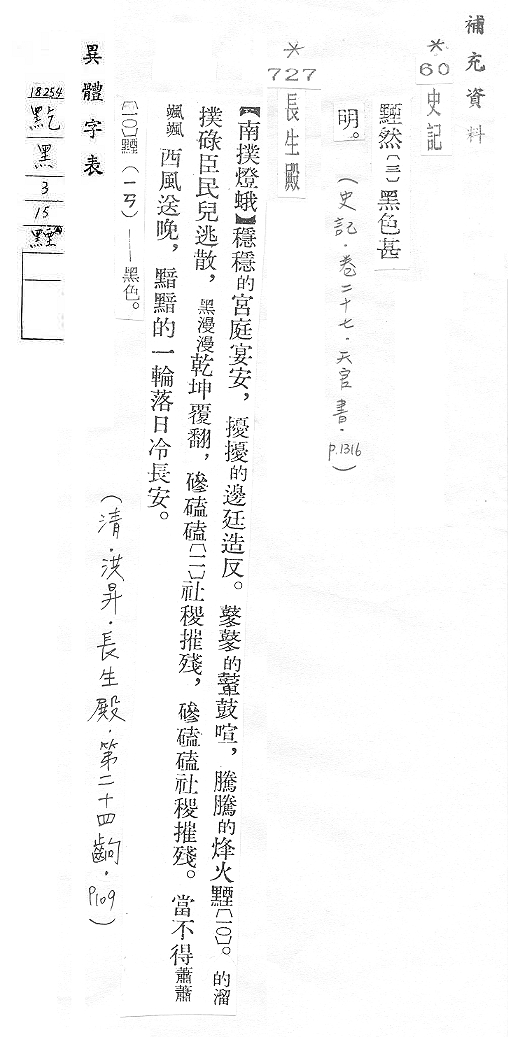 補充資料
*
60
史記
黫然〔三〕黑色甚
明。
(史記．卷二十七．天官書．p.1316)
*
727
長生殿
【南撲燈蛾】穩穩的宮庭宴安，擾擾的邊廷造反。鼕鼕的鼙鼓喧，騰騰的烽火黫〔一〇〕。的溜
撲碌臣民兒逃散，黑漫漫乾坤覆翻，磣磕磕〔一一〕社稷摧殘，磣磕磕社稷摧殘。當不得蕭蕭
颯颯西風送晚，黯黯的一輪落日冷長安。
〔一〇〕黫（ㄧㄢ）——黑色。
(清．洪昇．長生殿．第二十四齣．P109)
異體字表
18254
黑
3
15
黫